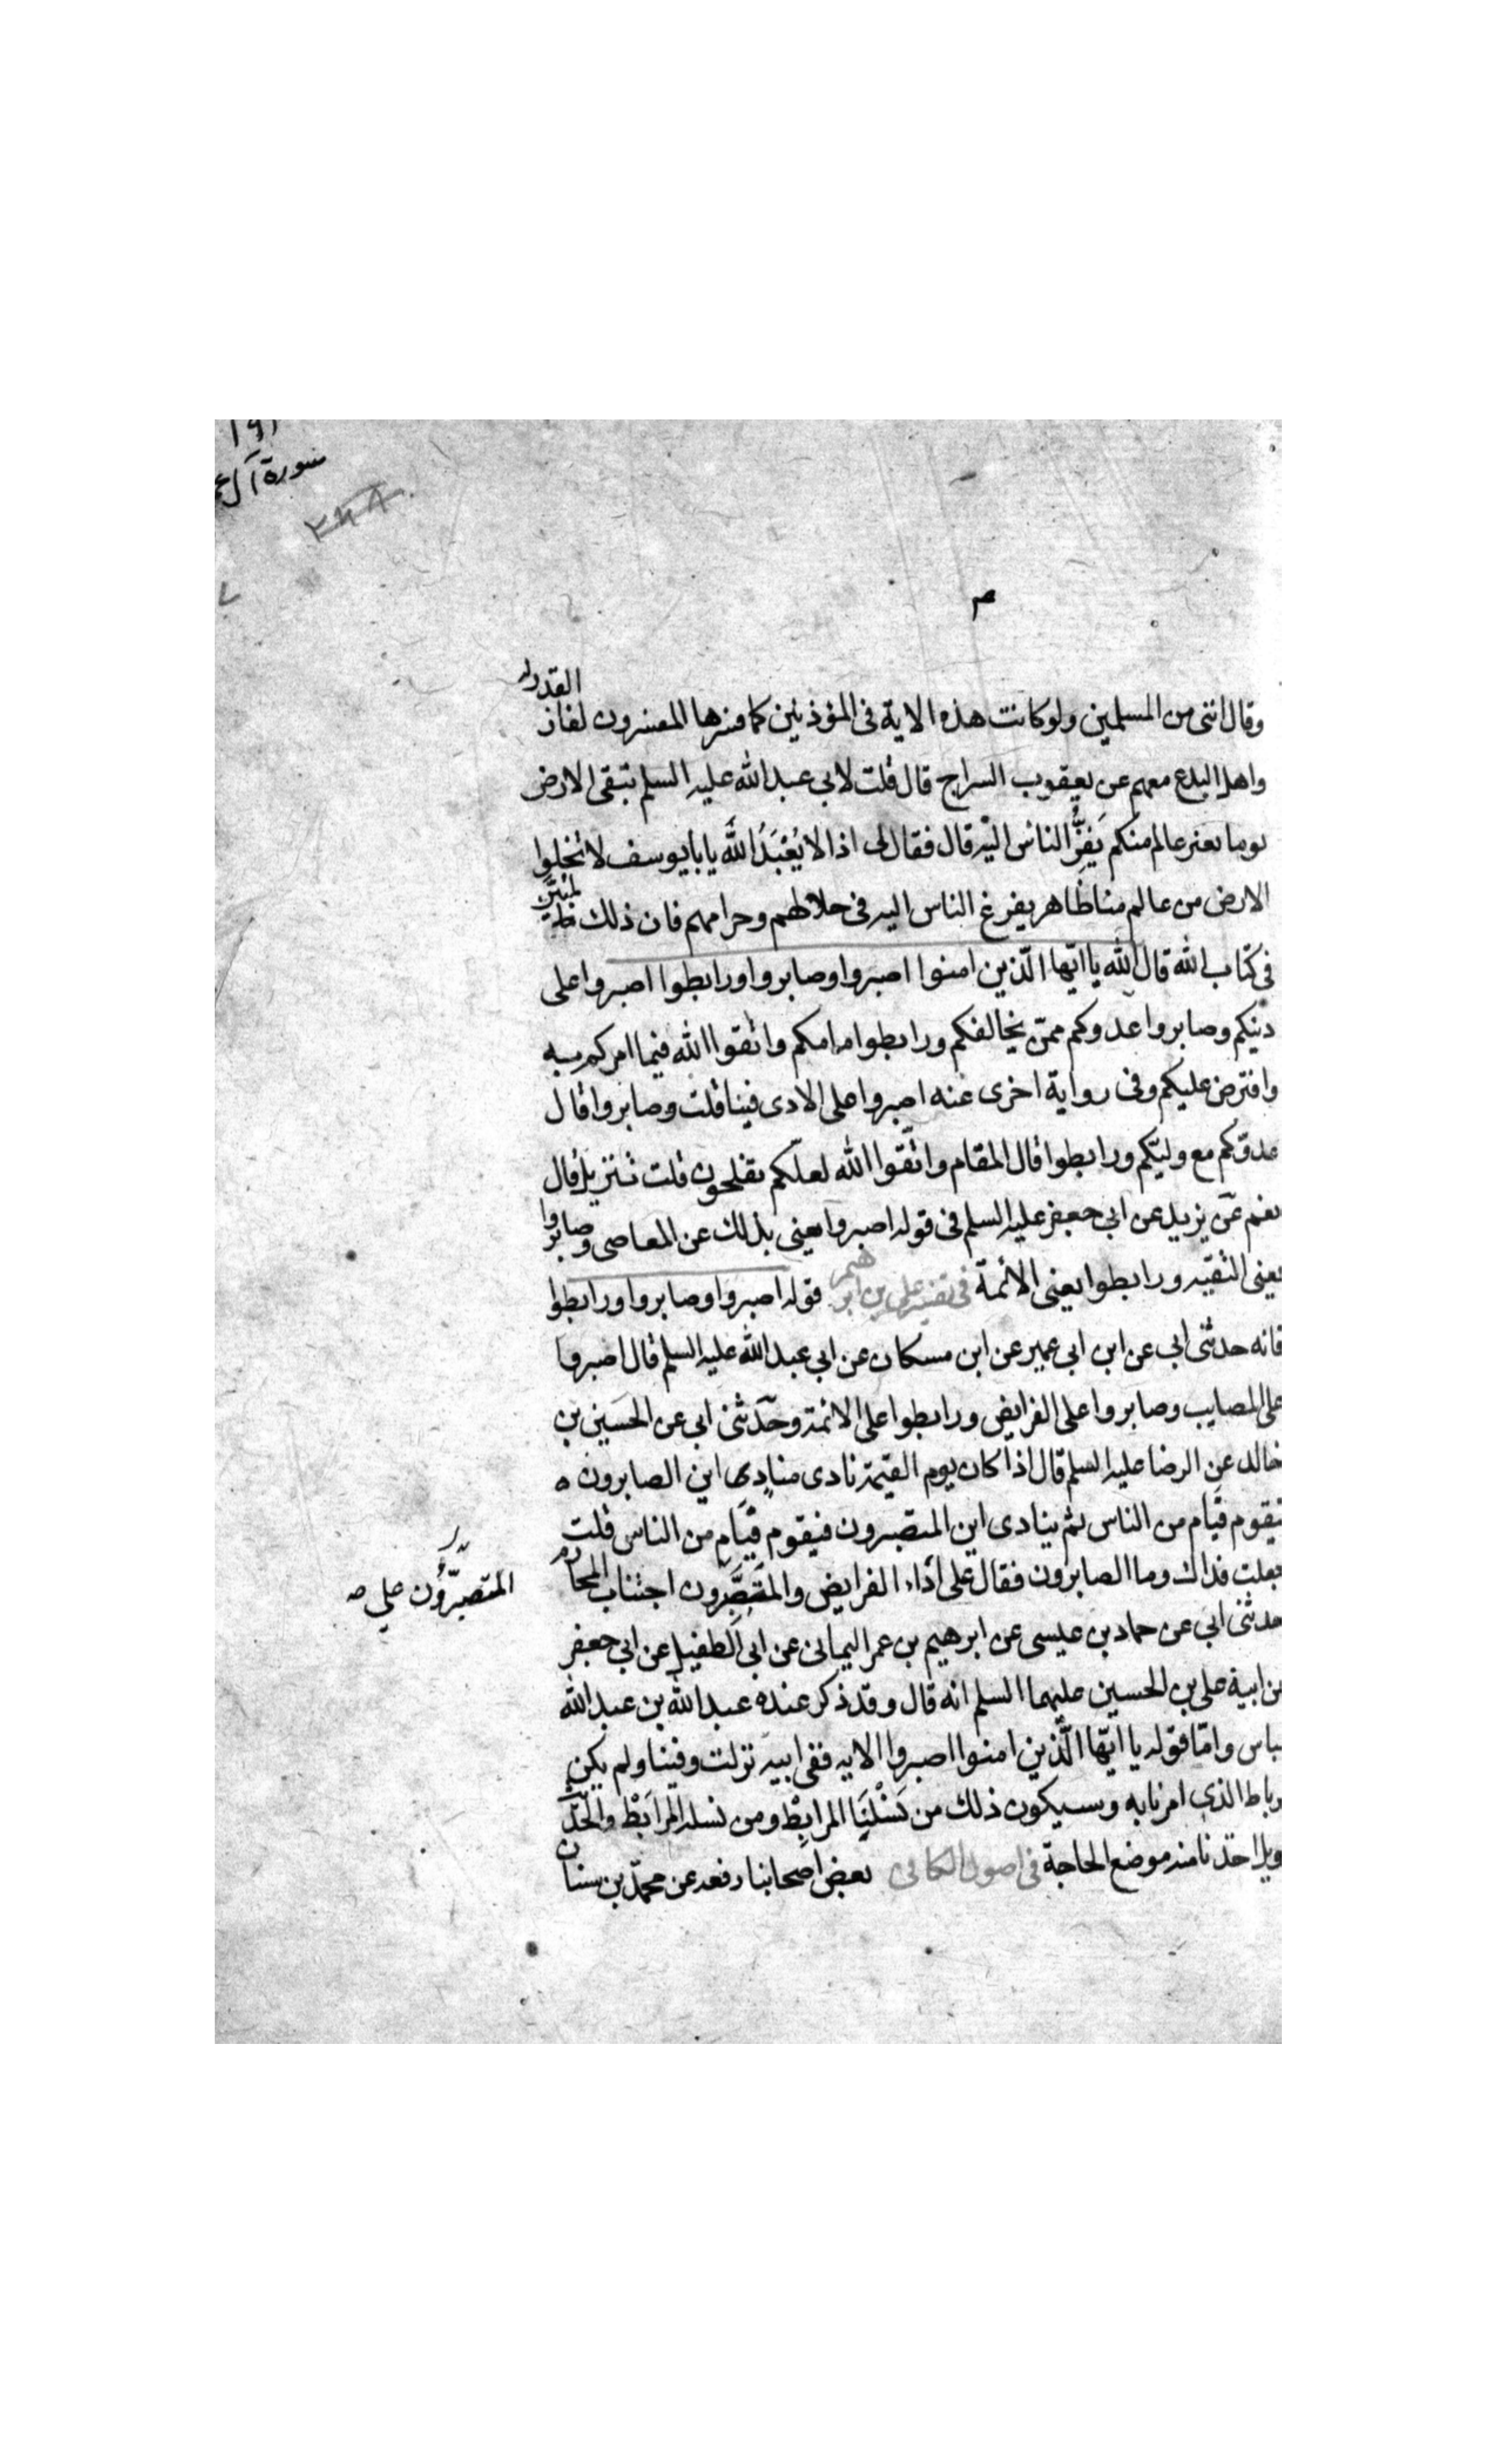 ١٩١
سورة آل ع
٢٤٨
م
وقال انني من المسلمين ولو كانت هذه الاية في المؤذنين كما فسرها المفسرون لفاز القدرية
واهل البدع معهم عن يعقوب السراج قال قلت لابي عبد الله عليه السلم تبقى الارض
يوما بغير عالم منكم يَفزَّ الناس اليه قال فقال لي اذا لا يُعْبَدُ الله يا با يوسف لا تخلوا
الارض من عالم منا ظاهر يفرغ الناس اليه في حلالهم وحرامهم فان ذلك لمبيّن
في كتاب الله قال الله يا ايّها الّذين امنوا اصبروا وصابروا ورابطوا اصبروا على
دينكم وصابروا عدوكم ممّن يخالفكم ورابطوا امامكم واتقوا الله فيما امركم به
وافترض عليكم وفي رواية اخرى عنه اصبروا على الاذى فينا قلت وصابروا قال
عدوّكم مع وليّكم ورابطوا قال المقام واتّقوا الله لعلّكم تفلحون قلت تنزيل قال
نعم عن بريد عن ابي جعفر عليه السلم في قوله اصبروا يعني بذلك عن المعاصي وصابروا
يعني التقيّه ورابطوا يعني الائمة في تفسير علي بن ابرهيم قوله اصبروا وصابروا ورابطوا
فانه حدثني ابي عن ابن ابي عمير عن ابن مسكان عن ابي عبد الله عليه السلم قال اصبروا
على المصايب وصابروا على الفرايض ورابطوا على الائمة وحدّثني ابي عن الحسين بن
خالد عن الرضا عليه السلم قال اذا كان يوم القيمة نادى منادٍي اين الصابرون
فيقوم قيام من الناس ثم ينادى اين المتصبرون فيقوم قيام من الناس قلت
جعلت فداك وما الصابرون فقال على أداء الفرايض والمتصبّرون اجتناب المحارم
المتصبّرون على صح
حدثني ابي عن حماد بن عيسى عن ابرهيم بن عمر اليماني عن ابي الطفيل عن ابي جعفر
عن ابية علي بن الحسين عليهما السلم انه قال وقد ذكر عنده عبد الله بن عبد الله
عباس وامّا قوله يا ايّها الّذين امنوا اصبروا الايه ففي ابيه نزلت وفينا ولم يكن
رباط الذي امرنا به وسيكون ذلك من نَسْلِنَا المرابِطْ ومن نسله المرابَطْ والحديث
طويل اخذنا منه موضع الحاجة في اصول الكافي بعض اصحابنا رفعه عن محمّد بن سنان